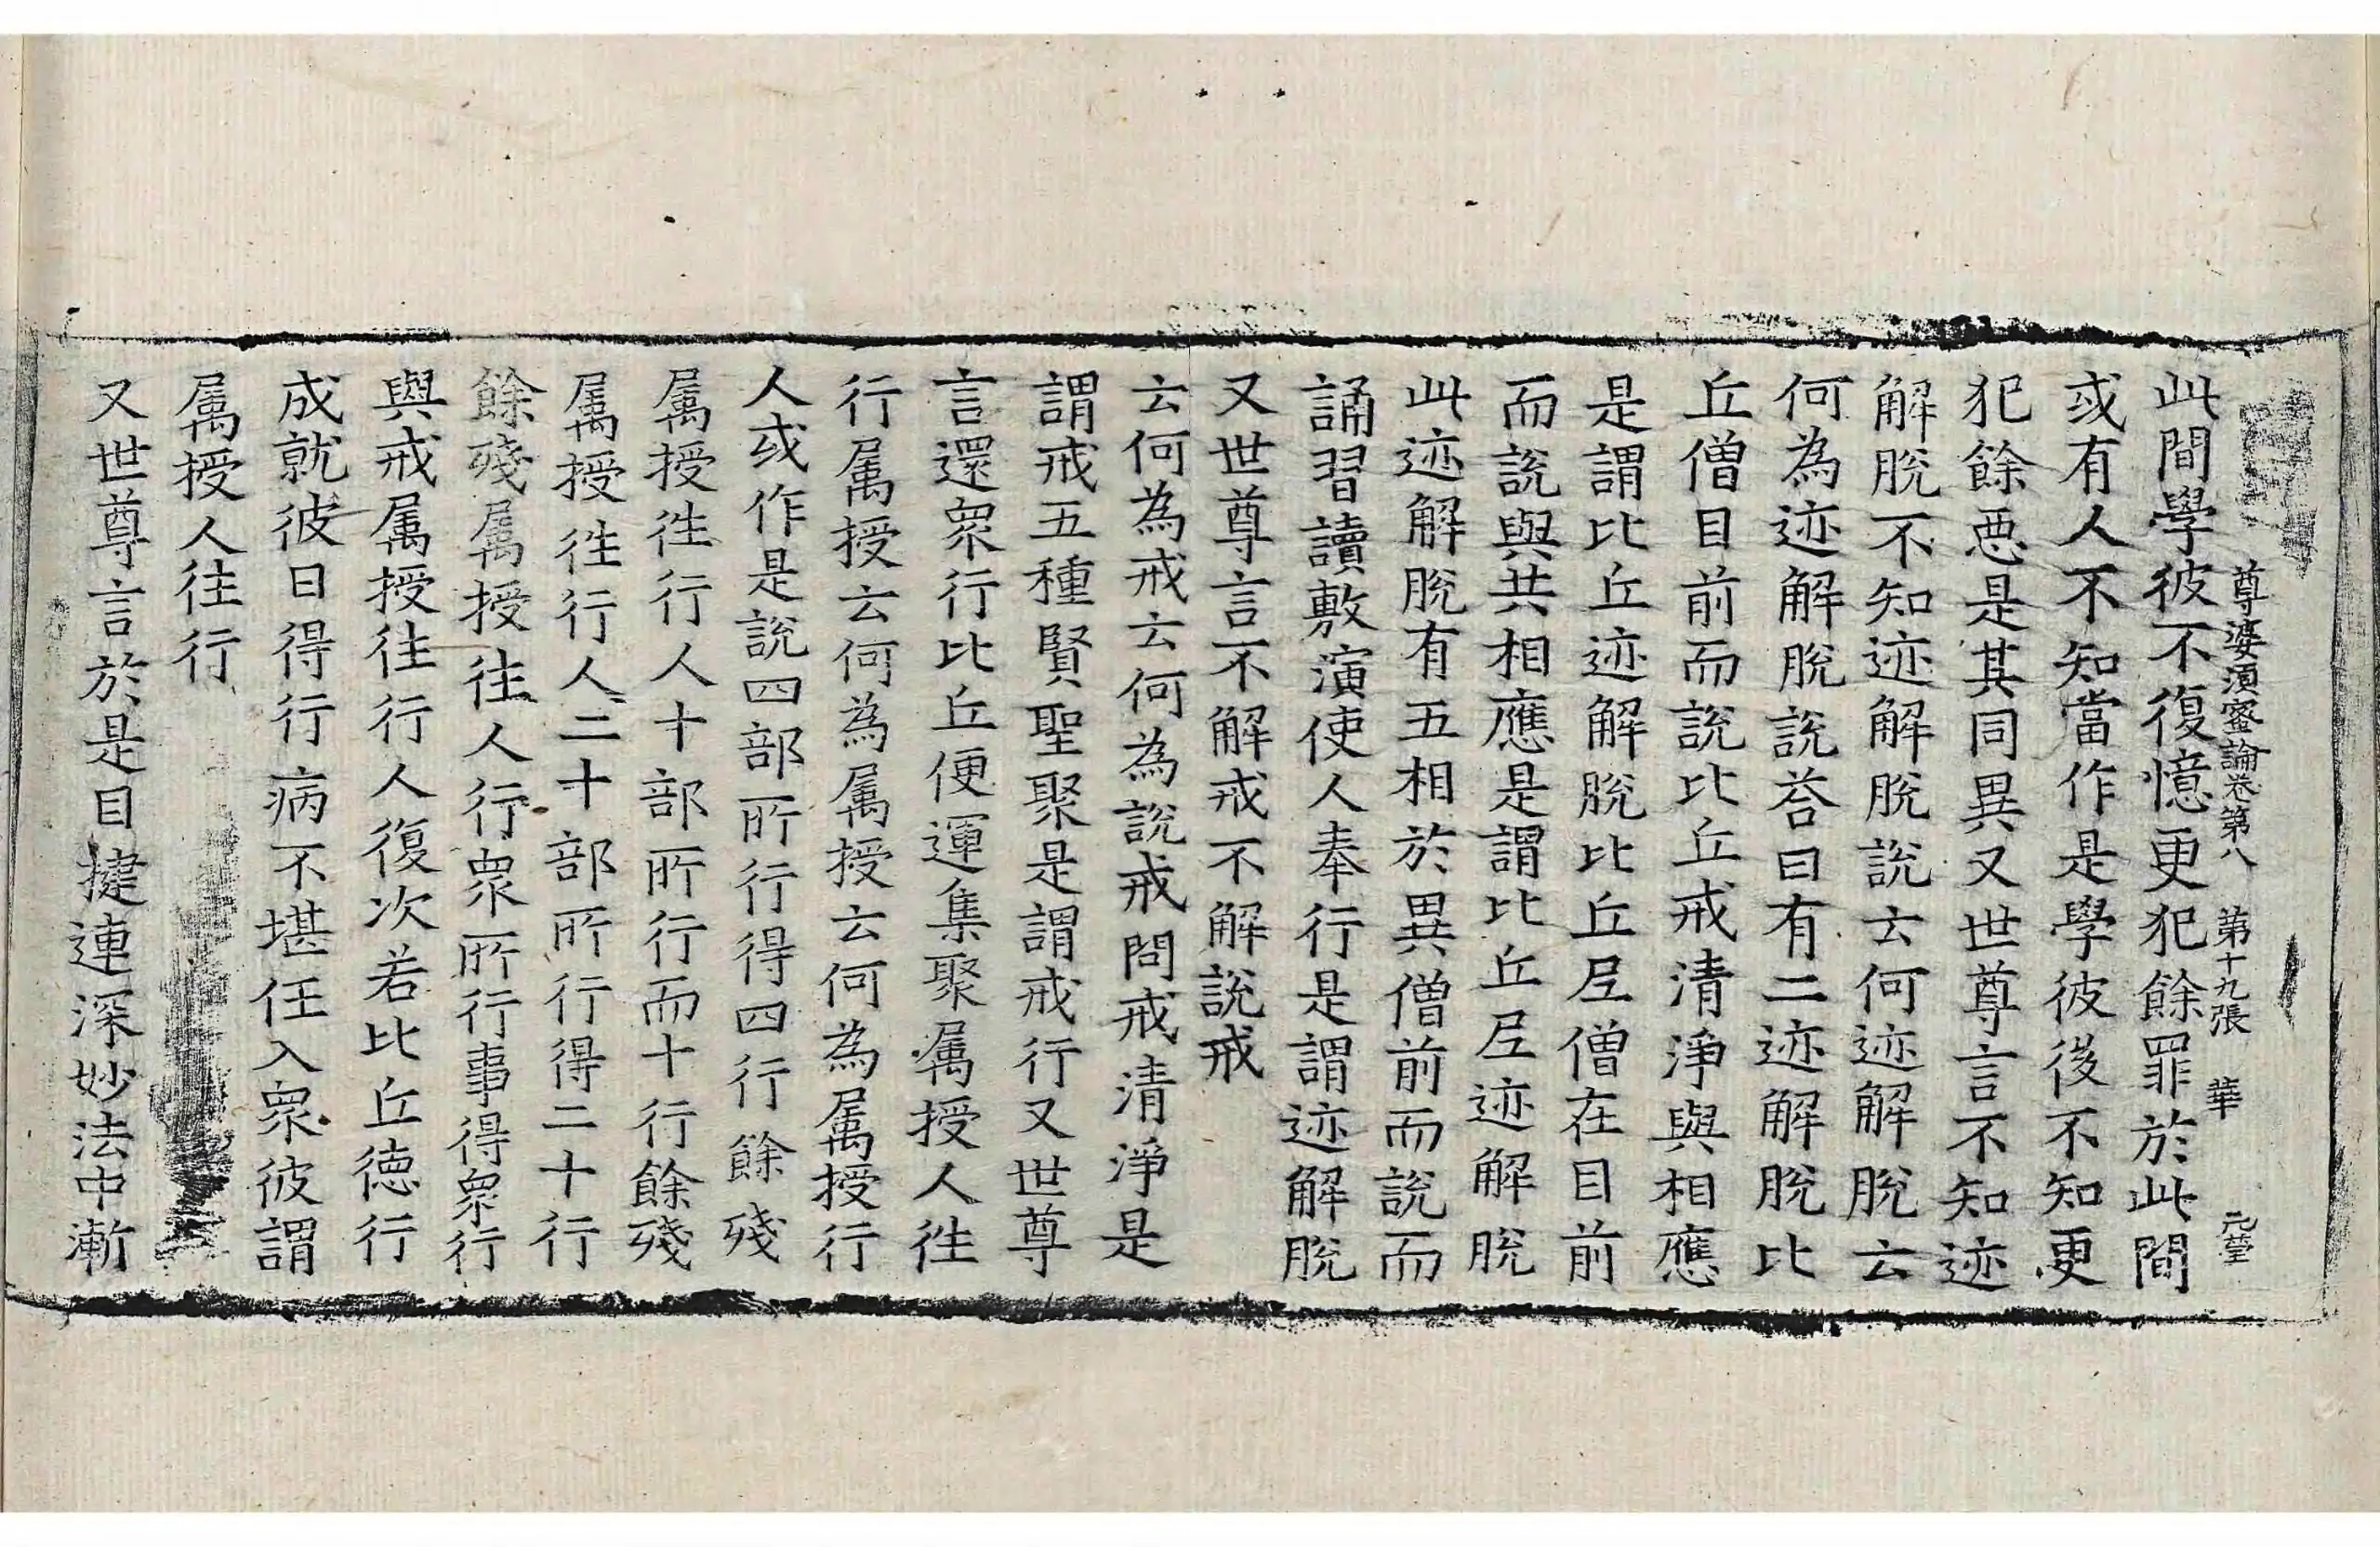 尊婆須蜜論卷第八 第十九張 華 元瑩
此間學彼不復憶更犯餘罪於此間
或有人不知當作是學彼後不知更
犯餘惡是其同異又世尊言不知迹
解脫不知迹解脫說云何迹解脫云
何為迹解脫說荅曰有二迹解脫比
丘僧目前而說比丘戒清淨與相應
是謂比丘迹解脫比丘尼僧在目前
而說與共相應是謂比丘尼迹解脫
此迹解脫有五相於異僧前而說而
誦習讀敷演使人奉行是謂迹解脫
又世尊言不解戒不解說戒
云何為戒云何為說戒問戒清淨是
謂戒五種賢聖聚是謂戒行又世尊
言還衆行比丘便運集聚属授人徃
行属授云何為属授云何為属授行
人或作是說四部所行得四行餘殘
属授徃行人十部所行而十行餘殘
属授徃行人二十部所行得二十行
餘殘属授往人行衆所行事得衆行
與戒属授往行人復次若比丘德行
成就彼日得行病不堪任入衆彼謂
属授人往行
又世尊言於是目揵連深妙法中漸